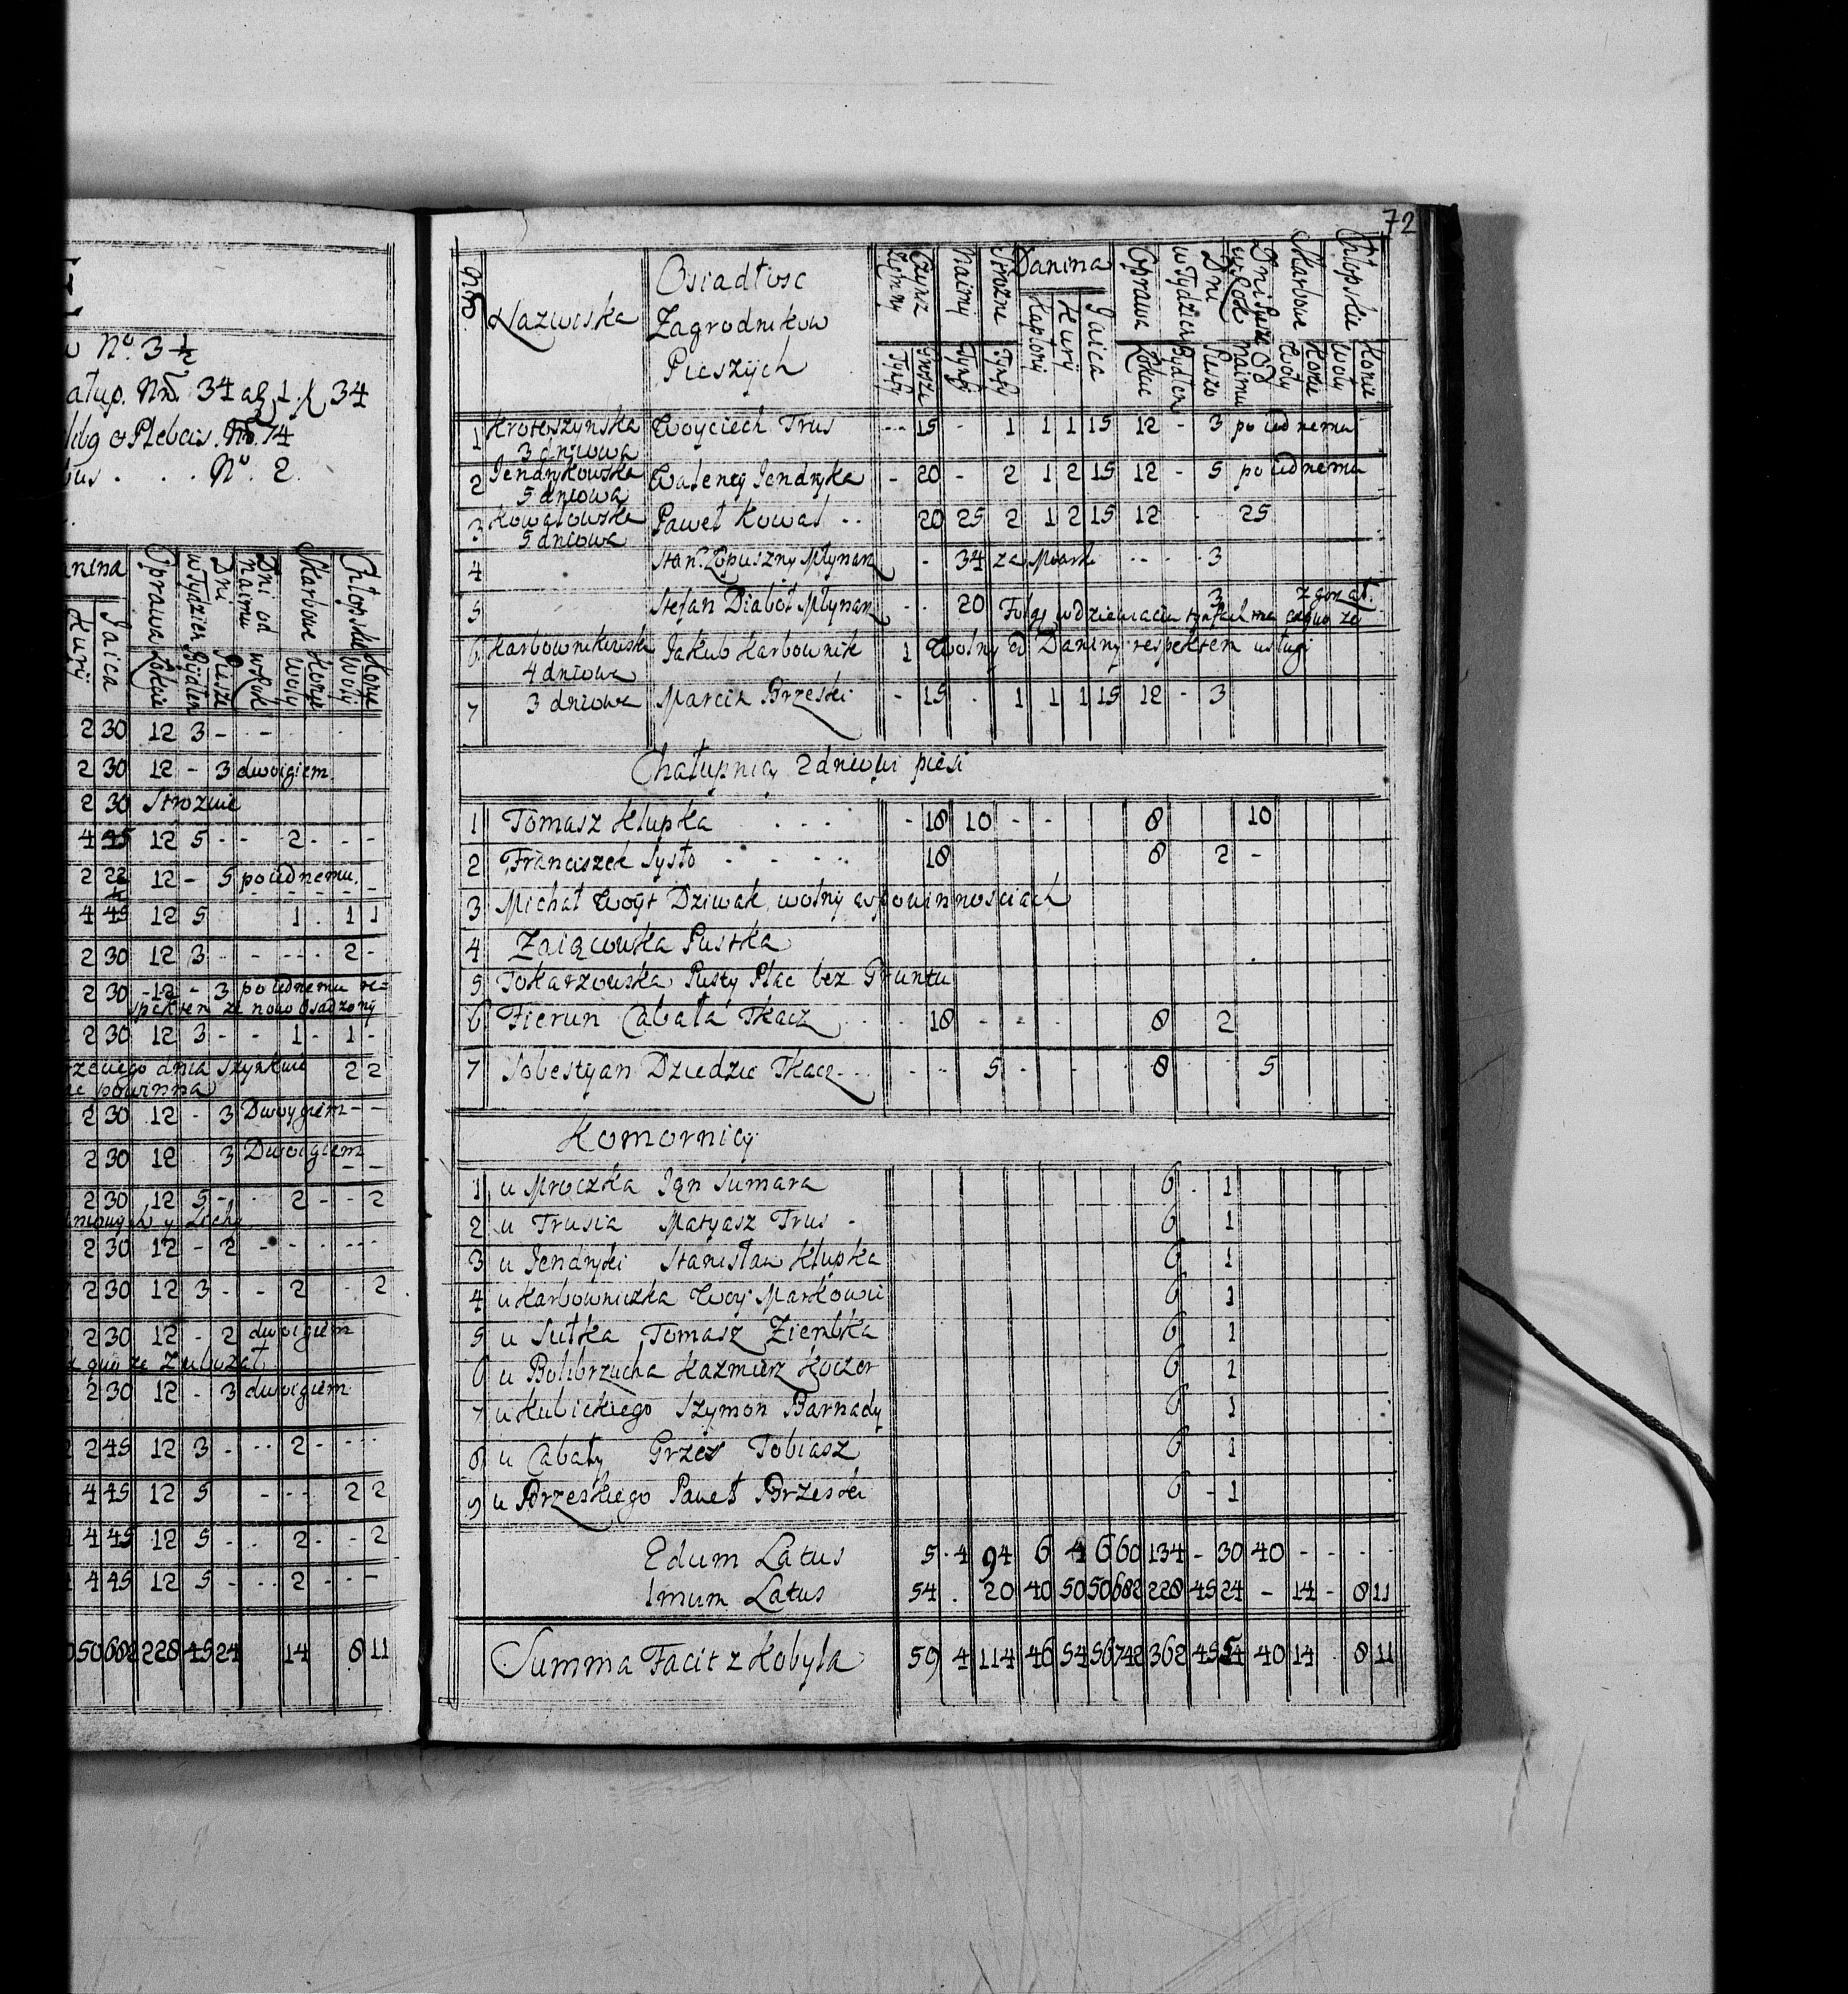 w No. 3 ½
atup. Nro. 34 alg 1 f 34
Plebais. No. 14
tus . . . No. 2.
anina Oprawa w Tydzien Dni Dni od naimu Skarbowe Chłopskie
Kury Jaica Łokcie Bydłem Piesze w roku Woły Konie Woły Konie
2 30 12 3 - -
2 30 12 - 3 dwoigiem
2 30 Strozuie
4 45 12 5 - - 2 - - -
2 22 ½ 12 - 5 poiednemu
4 45 12 5 1 . 1 1
2 30 12 3 - - - - - 2 -
2 30 - 12 - 3 poiednemu re=
spektem ze nowo Osadzony
2 30 12 3 - - 1 - 1 -
rzeciego dnia Szynkuie 2 2
powinna
2 30 12 - 3 Dwoygiem - -
2 30 12 3 Dwoigiem - -
2 30 12 5 - - 2 - - 2
2 30 12 - 2 - - - - -
2 30 12 3 - - 2 - 2
2 30 12 - 2 dwoigiem
quo ze Zubozał
2 30 12 - 3 dwoigiem
2 45 12 3 - - - 2 - - - -
4 45 12 5 - - - 2 2
4 45 12 5 - - 2 - - 2
4 45 12 5 - - - 2 - - -
50 682 228 45 24 14 8 11
72
Nro. Nazwiska Osiadłosc Zagrodnikow Pieszych
Czynsz Naimy Strozne Danina Oprawa w Tydzien Dni Dni Pieszo w Rok Od Naimu Skarbowe Chłopskie
Tynfy Grosze Tynfy Tynfy Kapłony Kury Jaica Łokcie Bydłem Pieszo Woły Konie Woły Konie
1 Krotoszynska 3 dniowa Woyciech Trus - - - 15 - 1 1 1 15 12 - 3 poiednemu
2 Jendrykowska 5 dniowa Walenty Jendryka - 20 - 2 1 2 15 12 - 5 poiednemu
3 Kowalowska 5 dniowa Paweł Kowal . . 20 25 2 1 2 15 12 25
4 Stan. Łopuszny Młynarz - 34 za Miark - - - 3
5 Stefan Diaboł Młynarz - - 20 3 zgorzał.
Folgi w dziewiaciu tynfach ma ex quo ze
6 Karbownikowska 4 dniowa Jakub Karbownik 1 Wolny od Daniny respektem usługi
7 3 dniowa Marcin Brzeski - 15 . 1 1 1 15 12 - 3
Chałupnicy 2 dniowi piesi
1 Tomasz Klupka . . . - 18 10 - - 8 10
2 Franciszek Sysło - - - - 18 8 2 -
3 Michał Woyt Dziwak wolny w powinnosciach
4 Zaiącowska Pustka
5 Tokarzowska Pusty Plac bez Gruntu
6 Fierun Cabała Tkacz . . . 18 - - - 8 2
7 Sobestyan Dziedzic Tkacz - . . - - - 5 - - 8 5
Komornicy
1 u Mroczka Jan Sumara 6 . 1
2 u Trusia Matyasz Trus - 6 1
3 u Jendryki Stanisław Klupka 6 1
4 u Karbowniczka Woy. Markowic 6 1
5 u Sułka Tomasz Ziembka 6 1
6 u Bolibrzucha Kazmierz Koczor 6 1
7 u Kubickiego Szymon Barnady 6 1
8 u Cabały Grzes Tobiasz 6 1
9 u Brzeskiego Paweł Brzeski 6 - 1
2dum Latus 5 . 4 94 6 4 6 60 134 - 30 40 - - - -
1mum Latus 54 . 20 40 50 50 682 228 45 24 - 14 - 8 11
Summa Facit z Kobyla 59 4 114 46 54 56 742 362 45 54 40 14 . 8 11